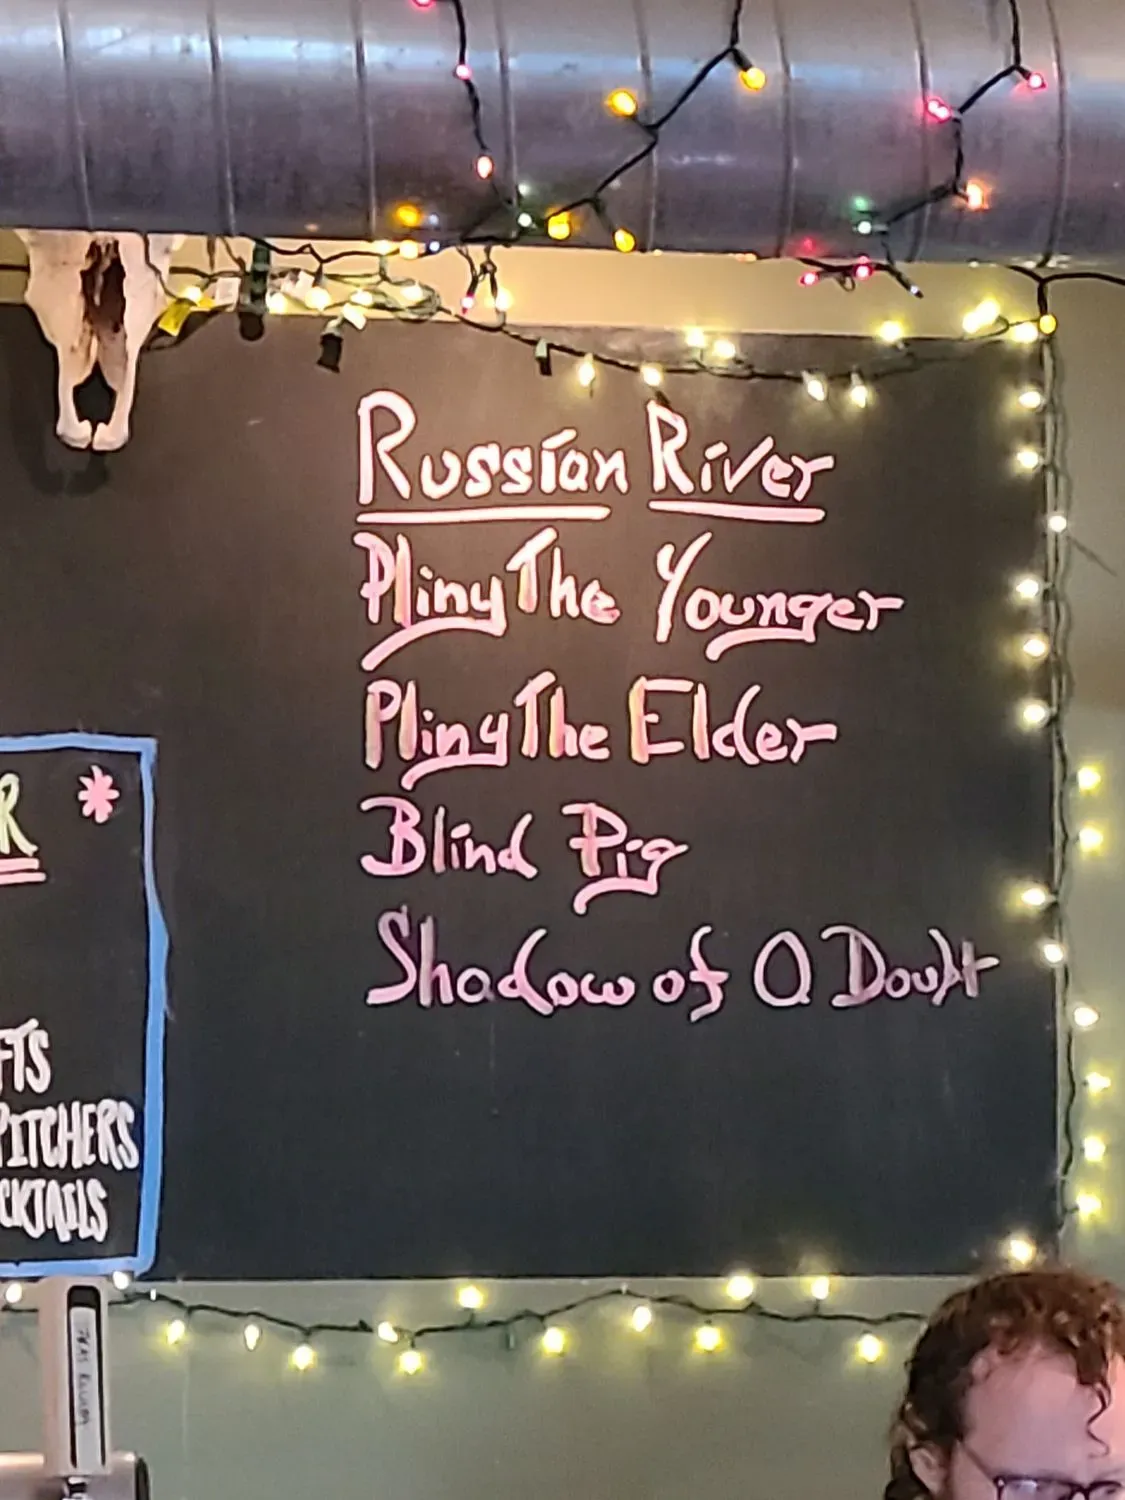 Russian River
Pliny The Younger
Pliny The Elder
Blind Pig
Shadow of A Doubt
R
FTS
PITCHERS
CKTAILS